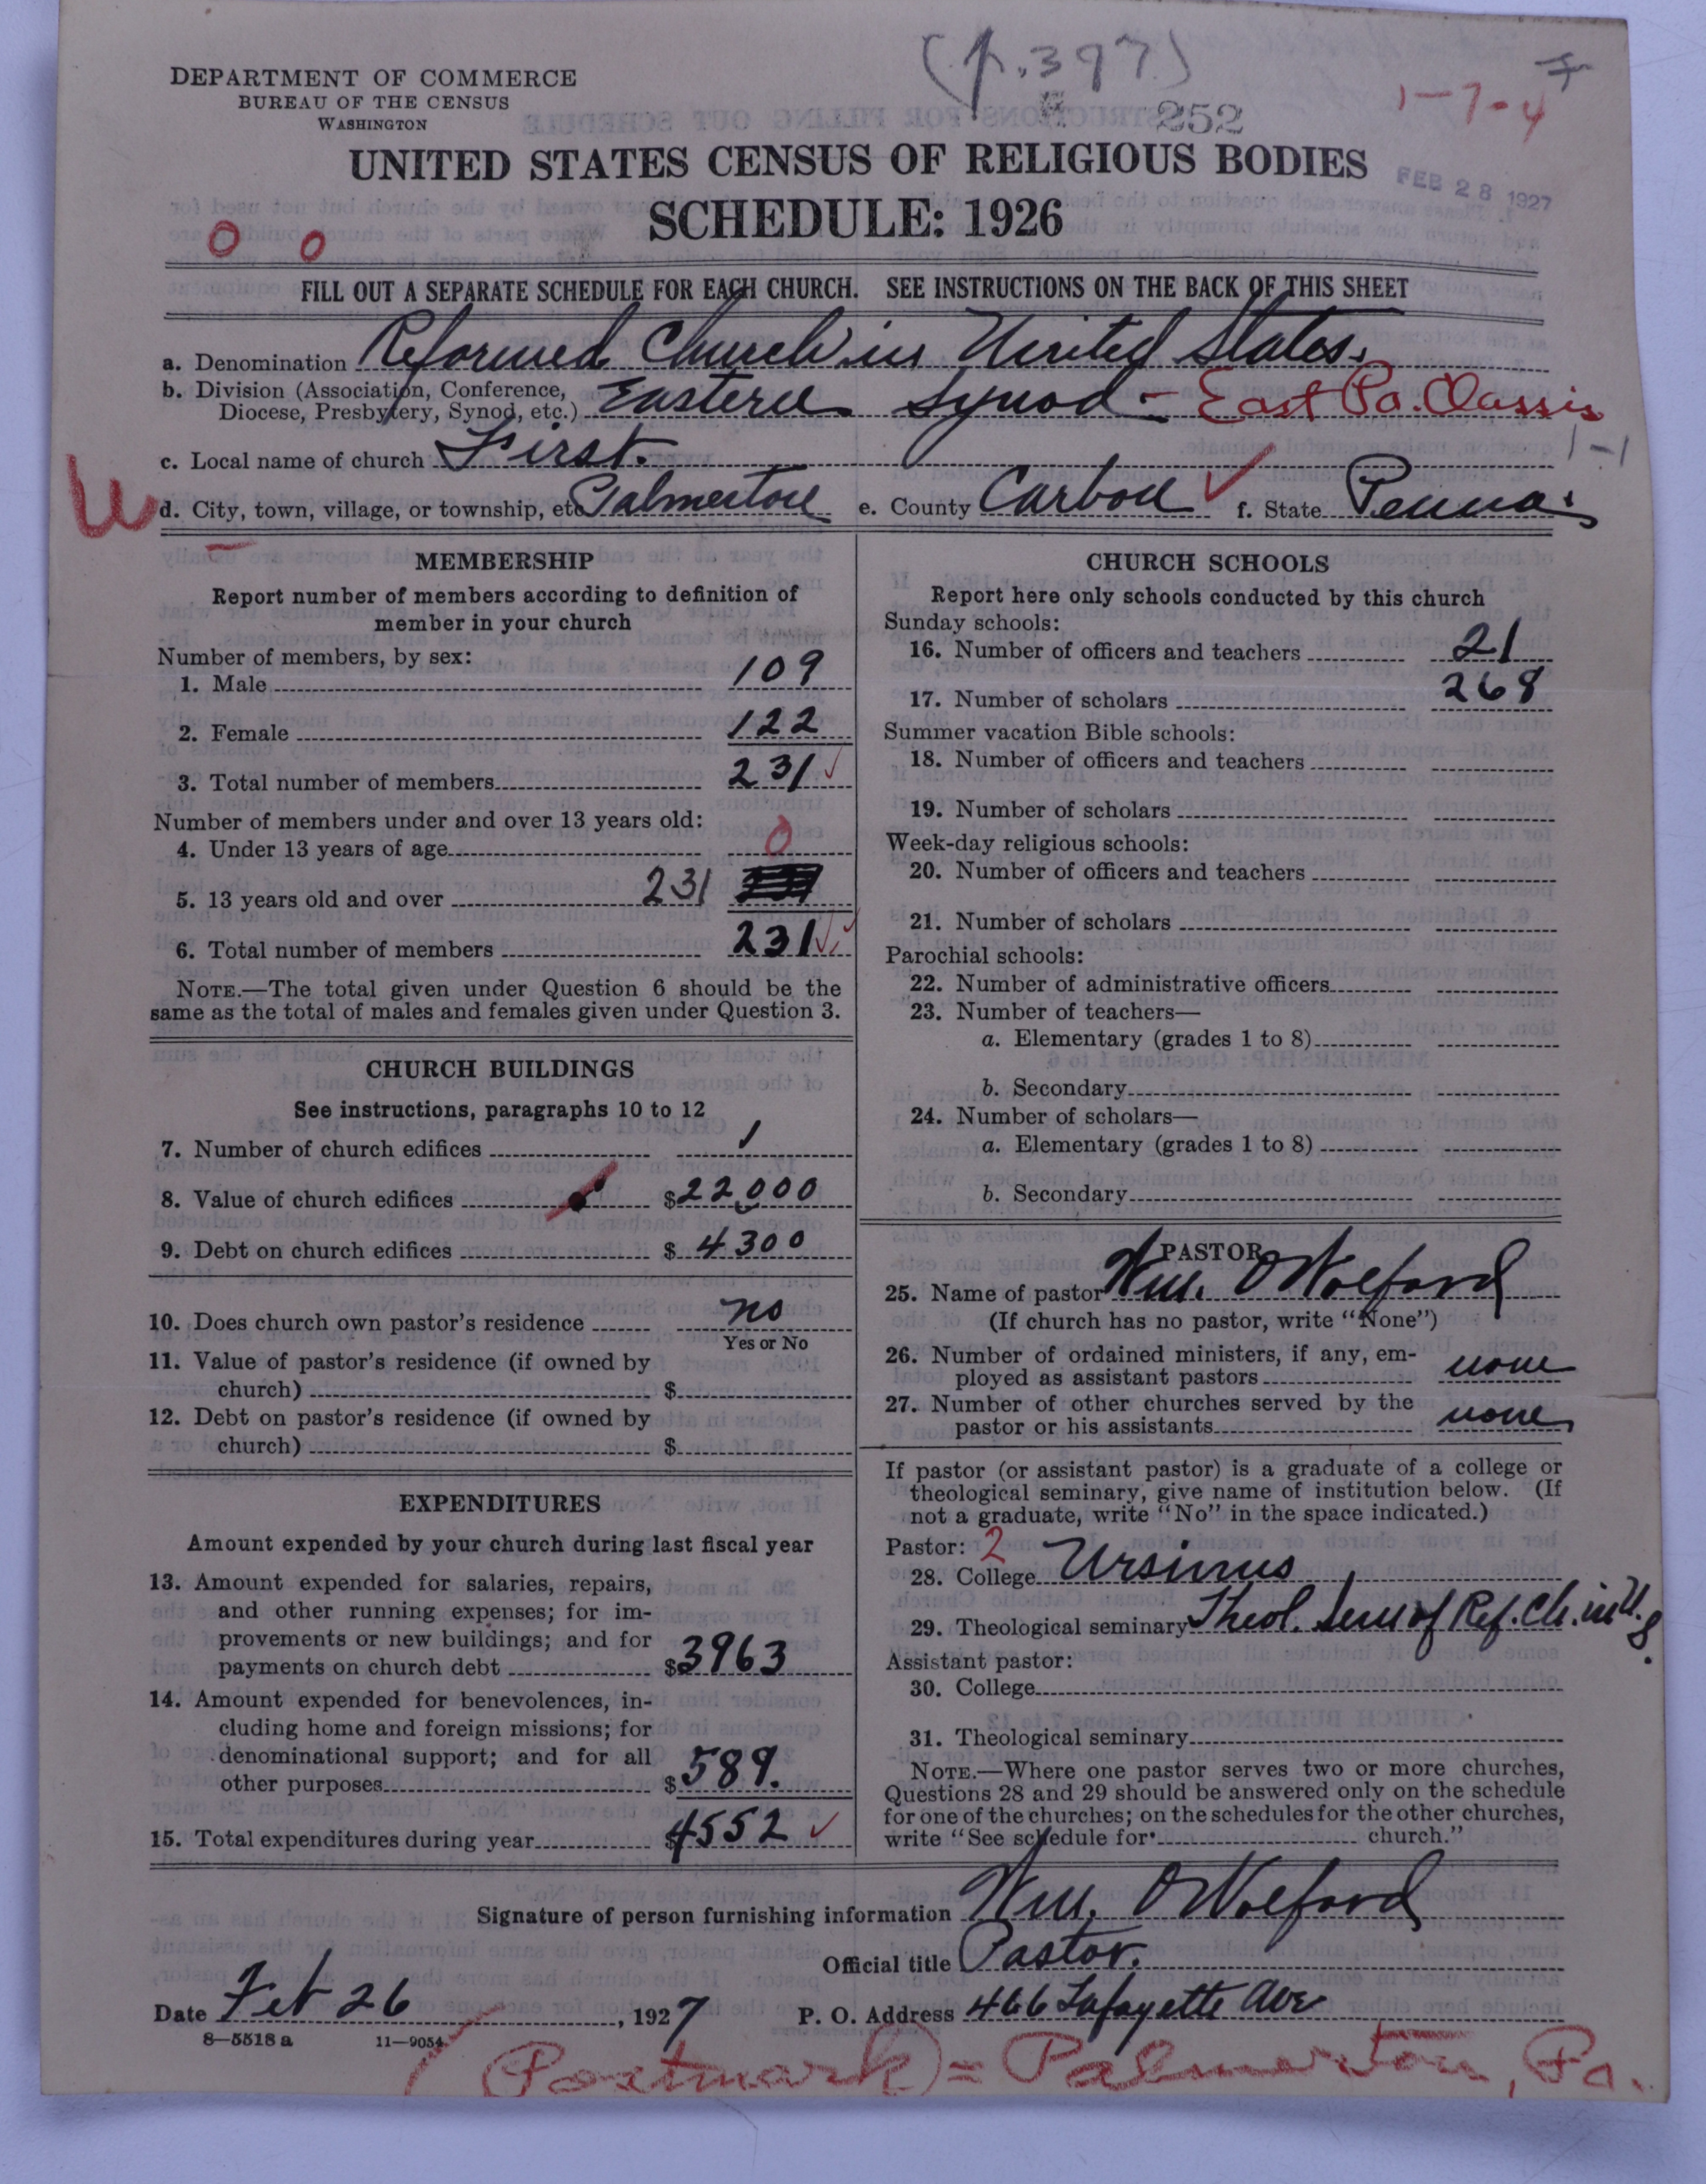 (p. 397)
DEPARTMENT OF COMMERCE
BUREAU OF THE CENSUS
WASHINGTON
252
1-7-4
UNITED STATES CENSUS OF RELIGIOUS BODIES
FEB 28 1927
SCHEDULE: 1926
0 0
FILL OUT A SEPARATE SCHEDULE FOR EACH CHURCH. SEE INSTRUCTIONS ON THE BACK OF THIS SHEET
a. Denomination Reformed Church in United States.
b. Division (Association, Conference, Diocese, Presbytery, Synod, etc.) Eastern Synod = East Pa. Classis
c. Local name of church First. 1-1
d. City, town, village, or township, etc Palmerton e. County Carbon f. State Penna.
MEMBERSHIP
Report number of members according to definition of
member in your church
Number of members, by sex:
1. Male 109
2. Female 122
3. Total number of members 231
Number of members under and over 13 years old:
4. Under 13 years of age 0
5. 13 years old and over 231
6. Total number of members 231
NOTE.—The total given under Question 6 should be the
same as the total of males and females given under Question 3.
CHURCH BUILDINGS
See instructions, paragraphs 10 to 12
7. Number of church edifices 1
8. Value of church edifices $22,000
9. Debt on church edifices $ 4300
10. Does church own pastor's residence no
Yes or No
11. Value of pastor's residence (if owned by
church) $
12. Debt on pastor's residence (if owned by
church) $
EXPENDITURES
Amount expended by your church during last fiscal year
13. Amount expended for salaries, repairs,
and other running expenses; for im-
provements or new buildings; and for
payments on church debt $3963
14. Amount expended for benevolences, in-
cluding home and foreign missions; for
denominational support; and for all
other purposes $589.
15. Total expenditures during year $4552
CHURCH SCHOOLS
Report here only schools conducted by this church
Sunday schools:
16. Number of officers and teachers 21
17. Number of scholars 268
Summer vacation Bible schools:
18. Number of officers and teachers
19. Number of scholars
Week-day religious schools:
20. Number of officers and teachers
21. Number of scholars
Parochial schools:
22. Number of administrative officers
23. Number of teachers—
a. Elementary (grades 1 to 8)
b. Secondary
24. Number of scholars—
a. Elementary (grades 1 to 8)
b. Secondary
PASTOR
25. Name of pastor Wm. O Wolford
(If church has no pastor, write "None")
26. Number of ordained ministers, if any, em-
ployed as assistant pastors none
27. Number of other churches served by the
pastor or his assistants none
If pastor (or assistant pastor) is a graduate of a college or
theological seminary, give name of institution below. (If
not a graduate, write "No" in the space indicated.)
Pastor: 2
28. College Ursinus
29. Theological seminary Theol. Sem of Ref. Ch. in U.S.
Assistant pastor:
30. College
31. Theological seminary
NOTE.—Where one pastor serves two or more churches,
Questions 28 and 29 should be answered only on the schedule
for one of the churches; on the schedules for the other churches,
write "See schedule for church."
Signature of person furnishing information Wm. O Wolford
Official title Pastor.
Date Feb 26, 1927 P. O. Address 466 Lafayette Ave
8—5518 a 11—9054
(Postmark) = Palmerton, Pa.